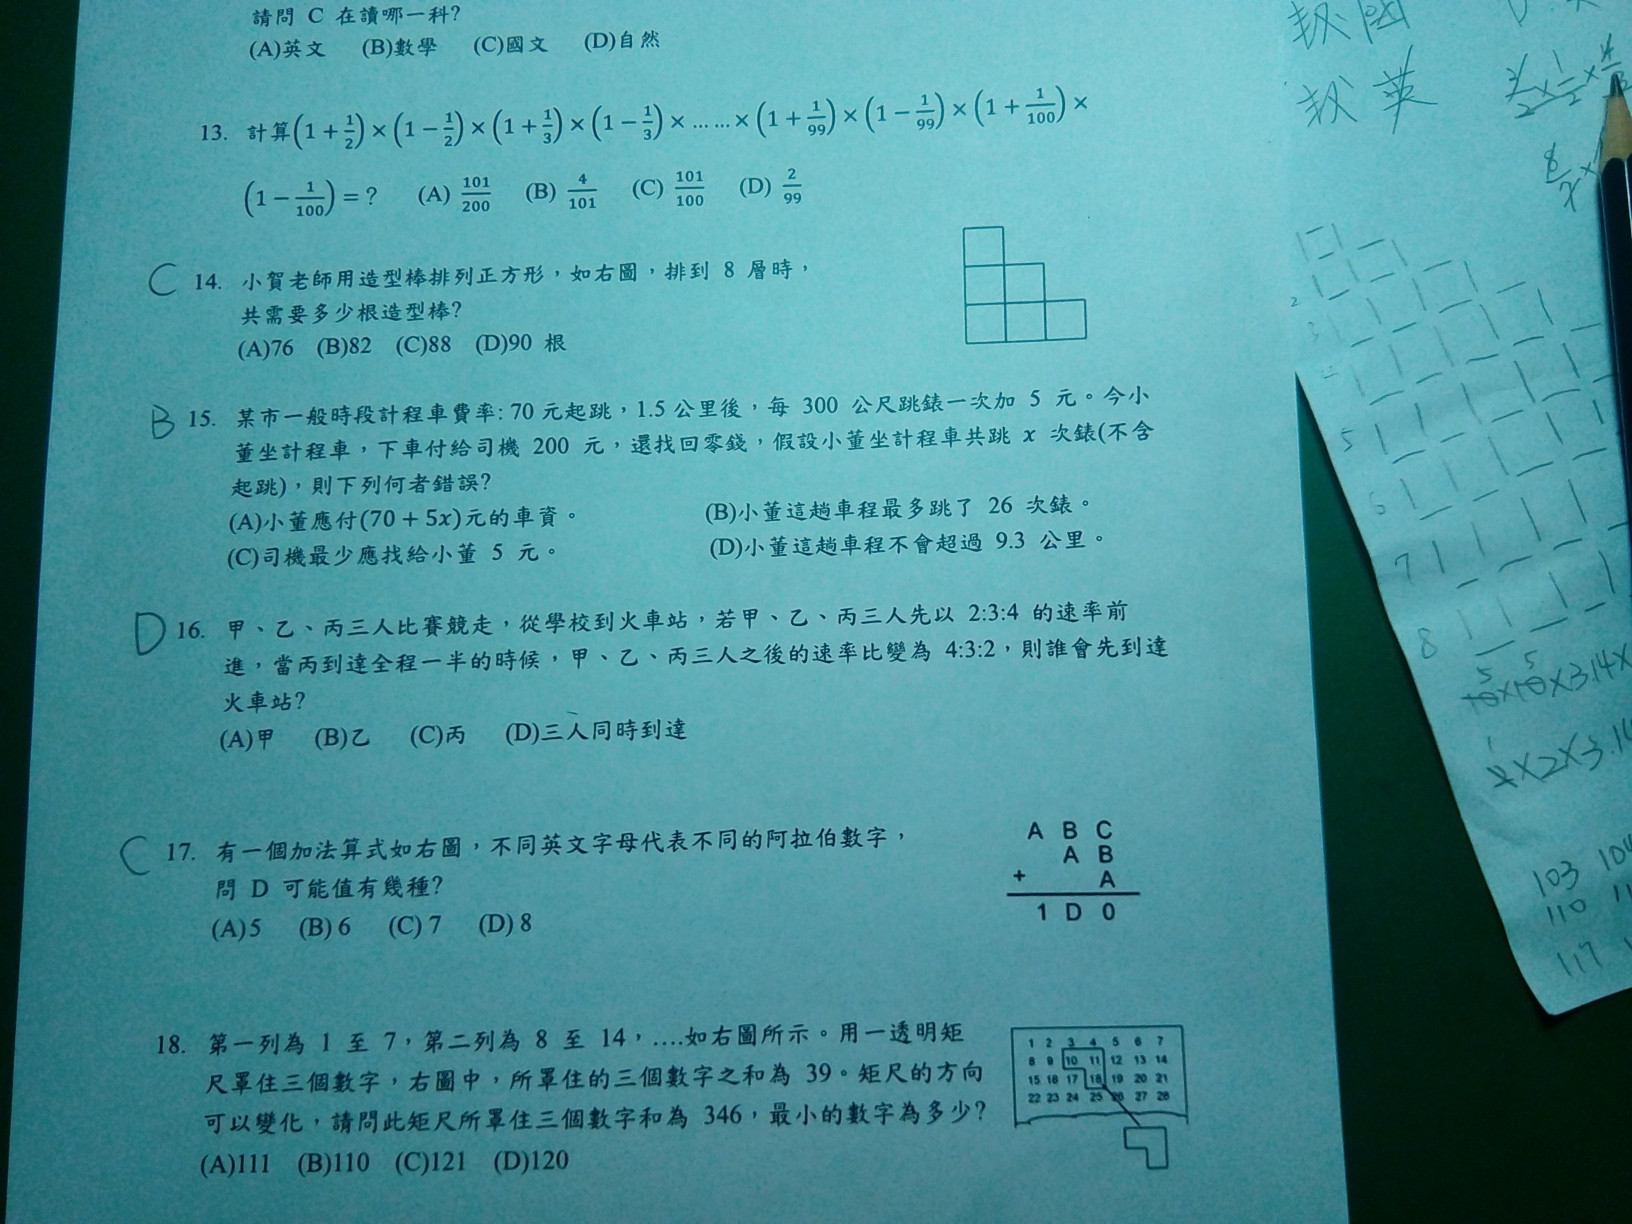 請問 C 在讀哪一科?
(A)英文 (B)數學 (C)國文 (D)自然
13. 計算(1+1/2)×(1−1/2)×(1+1/3)×(1−1/3)×……×(1+1/99)×(1−1/99)×(1+1/100)×
(1−1/100)=? (A) 101/200 (B) 4/101 (C) 101/100 (D) 2/99
C 14. 小賀老師用造型棒排列正方形，如右圖，排到 8 層時，
共需要多少根造型棒?
(A)76 (B)82 (C)88 (D)90 根
B 15. 某市一般時段計程車費率: 70 元起跳，1.5 公里後，每 300 公尺跳錶一次加 5 元。今小
董坐計程車，下車付給司機 200 元，還找回零錢，假設小董坐計程車共跳 x 次錶(不含
起跳)，則下列何者錯誤?
(A)小董應付(70 + 5x)元的車資。 (B)小董這趟車程最多跳了 26 次錶。
(C)司機最少應找給小董 5 元。 (D)小董這趟車程不會超過 9.3 公里。
D 16. 甲、乙、丙三人比賽競走，從學校到火車站，若甲、乙、丙三人先以 2:3:4 的速率前
進，當丙到達全程一半的時候，甲、乙、丙三人之後的速率比變為 4:3:2，則誰會先到達
火車站?
(A)甲 (B)乙 (C)丙 (D)三人同時到達
C 17. 有一個加法算式如右圖，不同英文字母代表不同的阿拉伯數字，
問 D 可能值有幾種?
(A)5 (B) 6 (C) 7 (D) 8
A B C
A B
+ A
1 D 0
18. 第一列為 1 至 7，第二列為 8 至 14，....如右圖所示。用一透明矩
尺罩住三個數字，右圖中，所罩住的三個數字之和為 39。矩尺的方向
可以變化，請問此矩尺所罩住三個數字和為 346，最小的數字為多少?
(A)111 (B)110 (C)121 (D)120
1 2 3 4 5 6 7
8 9 10 11 12 13 14
15 16 17 18 19 20 21
22 23 24 25 26 27 28
2
5
6
7
8
×3.14×
103 104
110
117